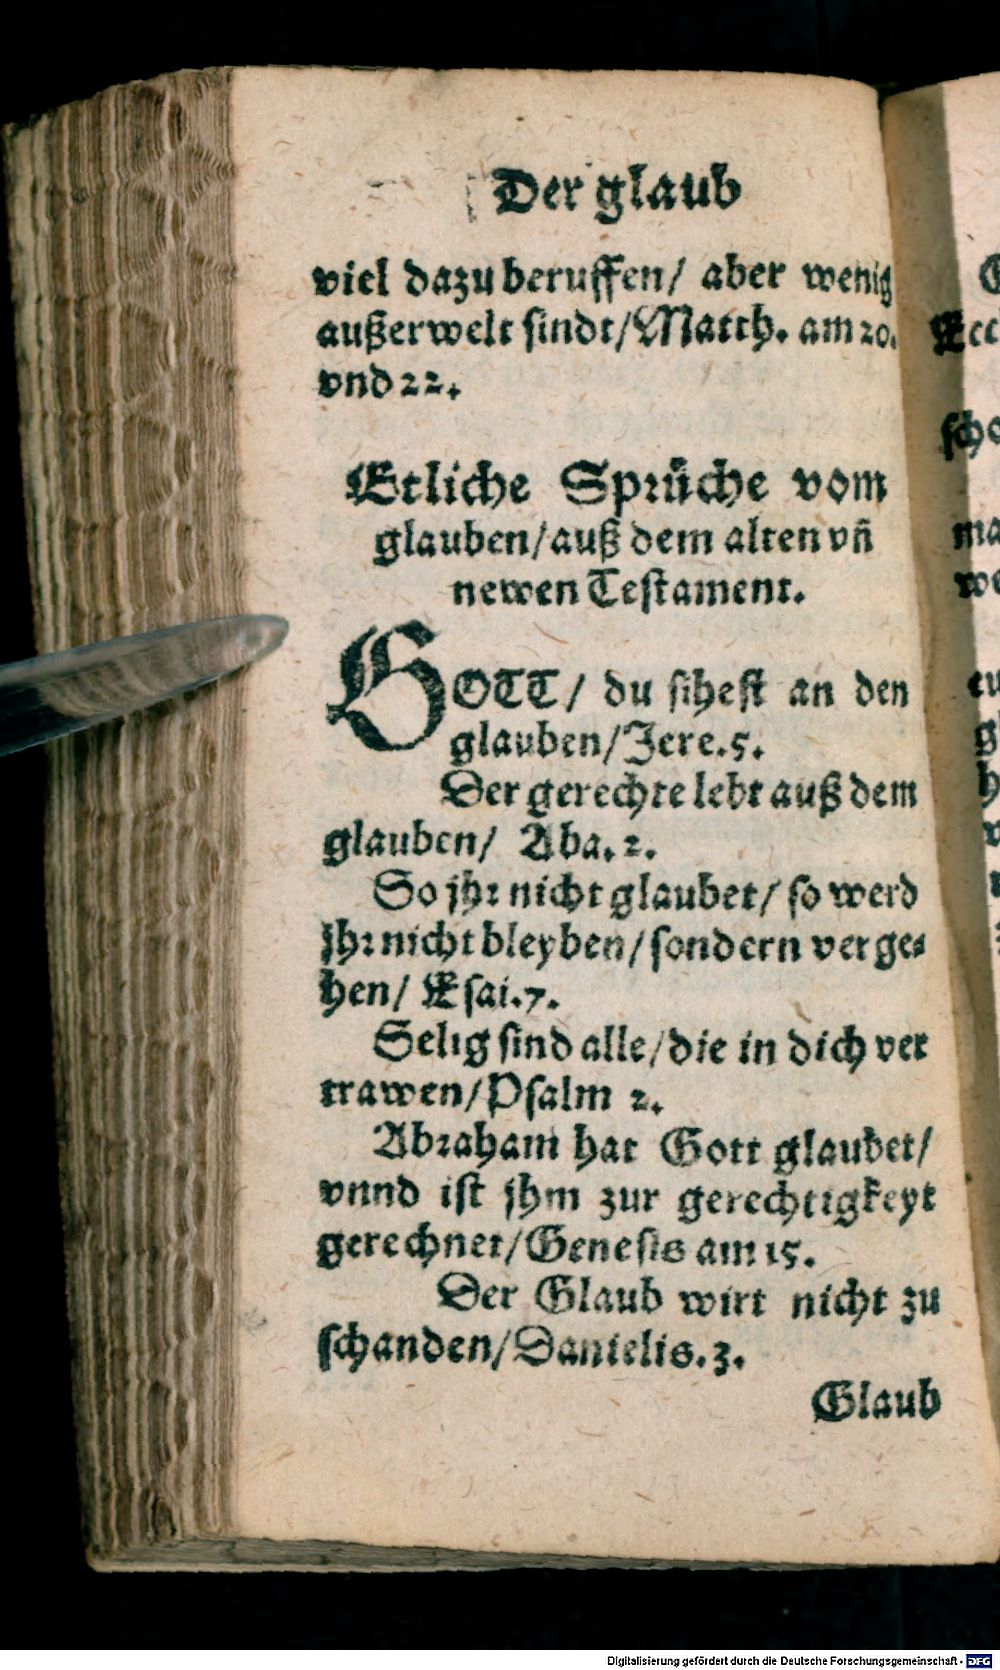 Der glaub
viel dazu beruffen/ aber wenig
außerwelt sindt/Matth. am 20.
vnd 22.
Etliche Sprüche vom
glauben/auß dem alten vñ
newen Testament.
GOTT/ du sihest an den
glauben/Jere.5.
Der gerechte lebt auß dem
glauben/ Aba.2.
So jhr nicht glaubet/ so werd
jhr nicht bleyben/sondern verge⸗
hen/ Esai.7.
Selig sind alle/die in dich ver
trawen/Psalm 2.
Abraham hat Gott glaubet/
vnnd ist jhm zur gerechtigkeyt
gerechnet/Genesis am 15.
Der Glaub wirt nicht zu
schanden/Danielis.3.
Glaub
Digitalisierung gefördert durch die Deutsche Forschungsgemeinschaft - DFG